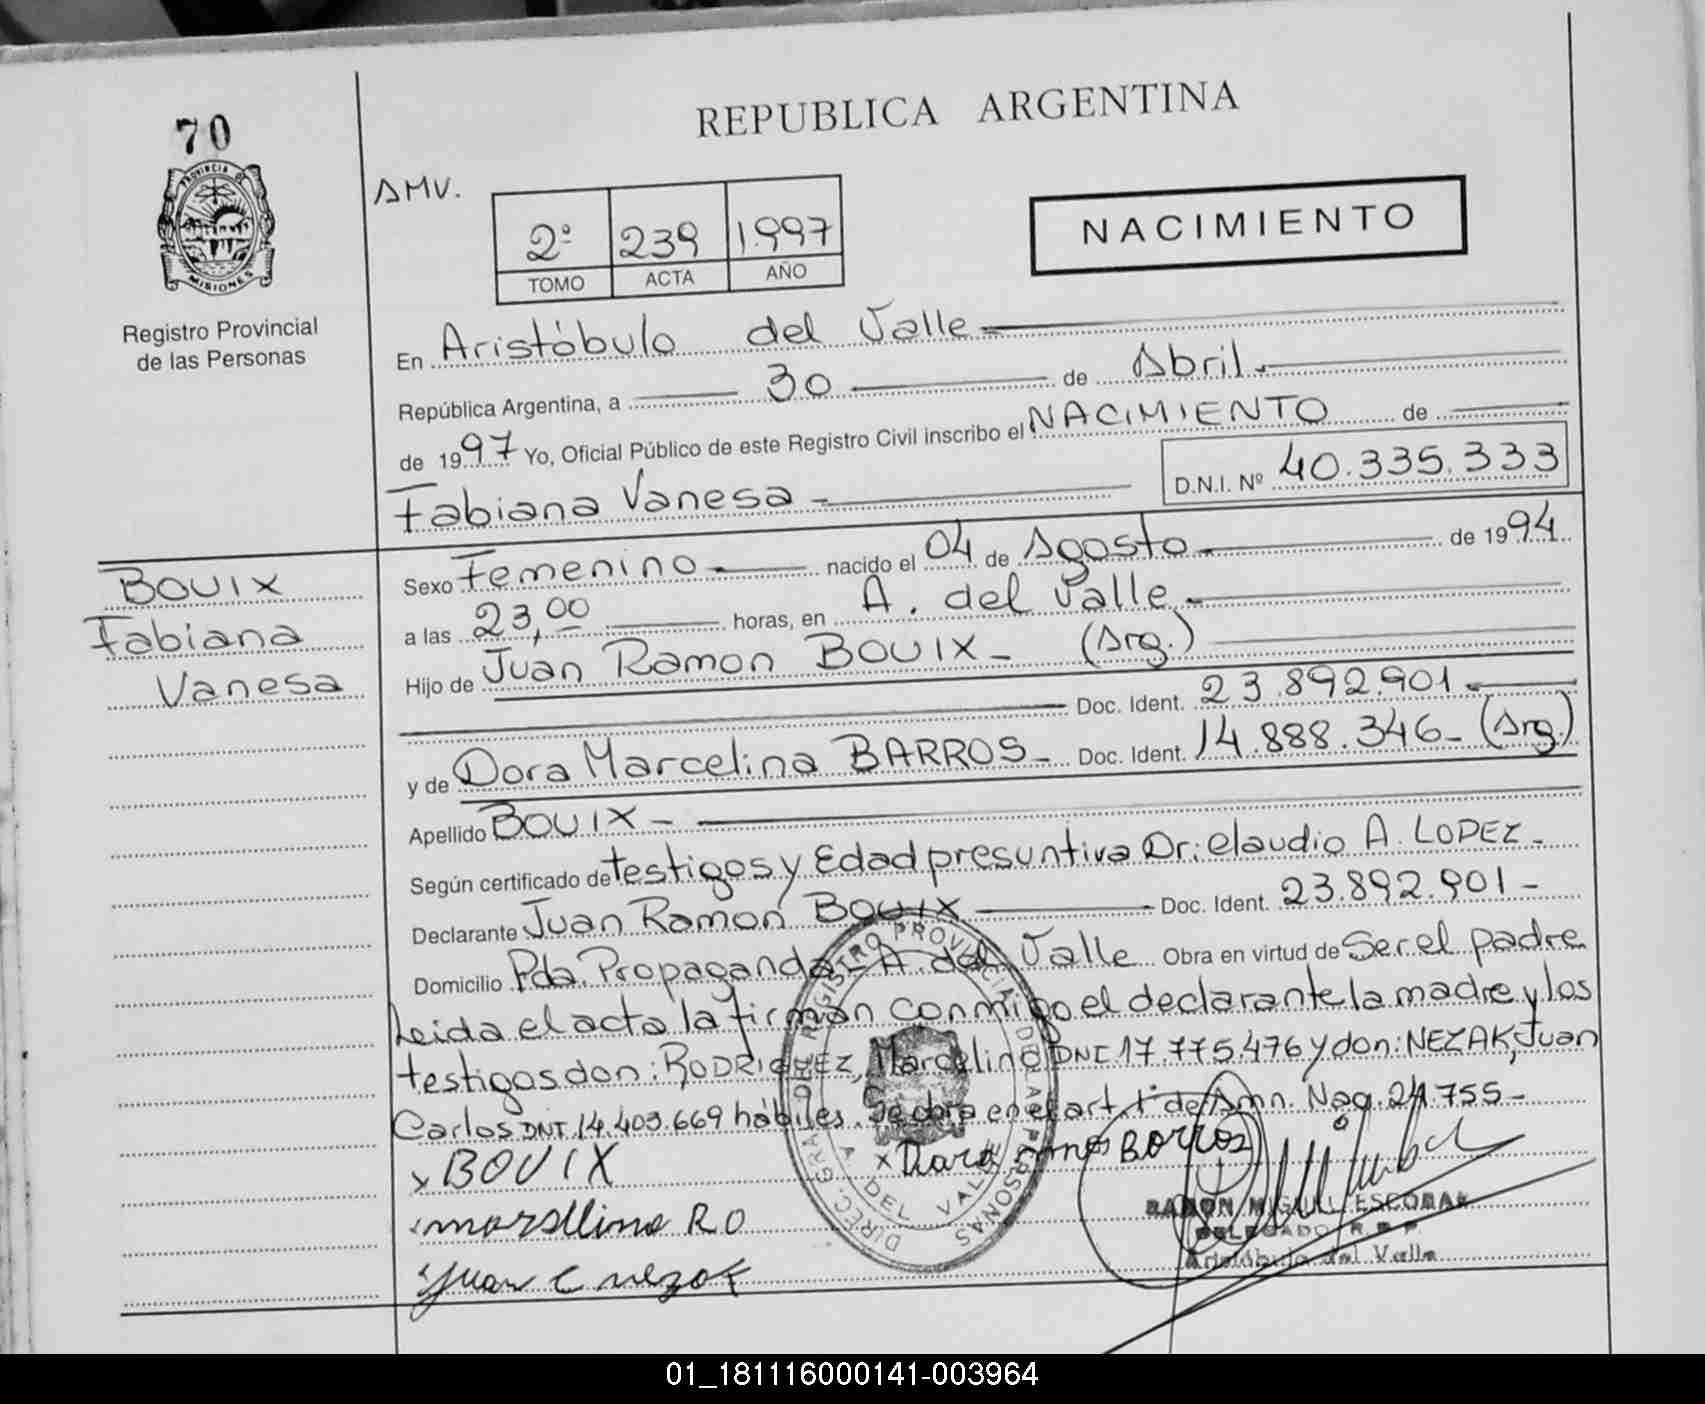 70
PROVINCIA DE
MISIONES
Registro Provincial
de las Personas
REPUBLICA ARGENTINA
AMV.
2º 239 1.997
TOMO ACTA AÑO
NACIMIENTO
En Aristóbulo del Valle
República Argentina, a 30 de Abril
de 1997 Yo, Oficial Público de este Registro Civil inscribo el NACIMIENTO de
Fabiana Vanesa D.N.I. Nº 40.335.333
BOUIX
Fabiana
Vanesa
Sexo Femenino nacido el 04 de Agosto de 1994
a las 23,00 horas, en A. del Valle
Hijo de Juan Ramon BOUIX - (Arg.)
Doc. Ident. 23.892.901
y de Dora Marcelina BARROS - Doc. Ident. 14.888.346 - (Arg.)
Apellido BOUIX -
Según certificado de testigos y Edad presuntiva Dr: Claudio A. LOPEZ -
Declarante Juan Ramon BOUIX Doc. Ident. 23.892.901 -
Domicilio Pda. Propaganda - A. del Valle Obra en virtud de Ser el padre
Leida el acta la firman conmigo el declarante la madre y los
testigos don: RODRIGUEZ, Marcelino DNI 17.775.476 y don: NEZAK, Juan
Carlos DNI 14.403.669 hábiles. Se obra en el art. 1º de Amn. Nag. 24.755 -
x BOUIX
x Barros
marsllino RO
Juan C nezak
DIREC. GRAL. DEL REGISTRO PROVINCIAL DE LAS PERSONAS
A. DEL VALLE
RAMON MIGUEL ESCOBAR
DELEGADO R.P.P.
Aristóbulo del Valle
01_181116000141-003964